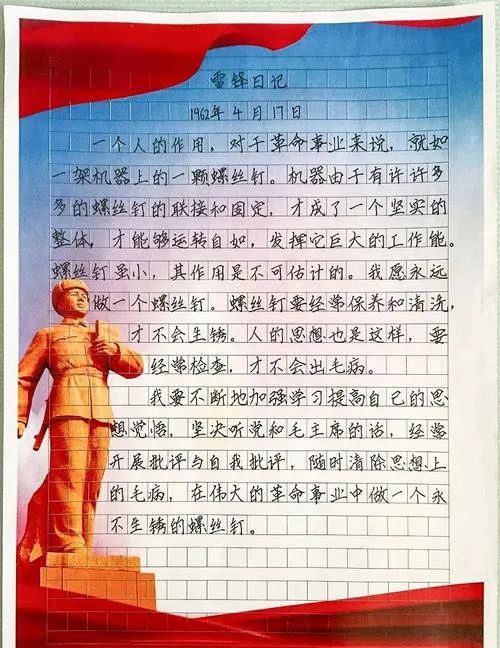 雷锋日记
1962年4月17日
一个人的作用，对于革命事业来说，就如
一架机器上的一颗螺丝钉。机器由于有许许多
多的螺丝钉的联接和固定，才成了一个坚实的
整体，才能够运转自如，发挥它巨大的工作能。
螺丝钉虽小，其作用是不可估计的。我愿永远
做一个螺丝钉。螺丝钉要经常保养和清洗，
才不会生锈。人的思想也是这样，要
经常检查，才不会出毛病。
我要不断地加强学习提高自己的思
想觉悟，坚决听党和毛主席的话，经常
开展批评与自我批评，随时清除思想上
的毛病，在伟大的革命事业中做一个永
不生锈的螺丝钉。